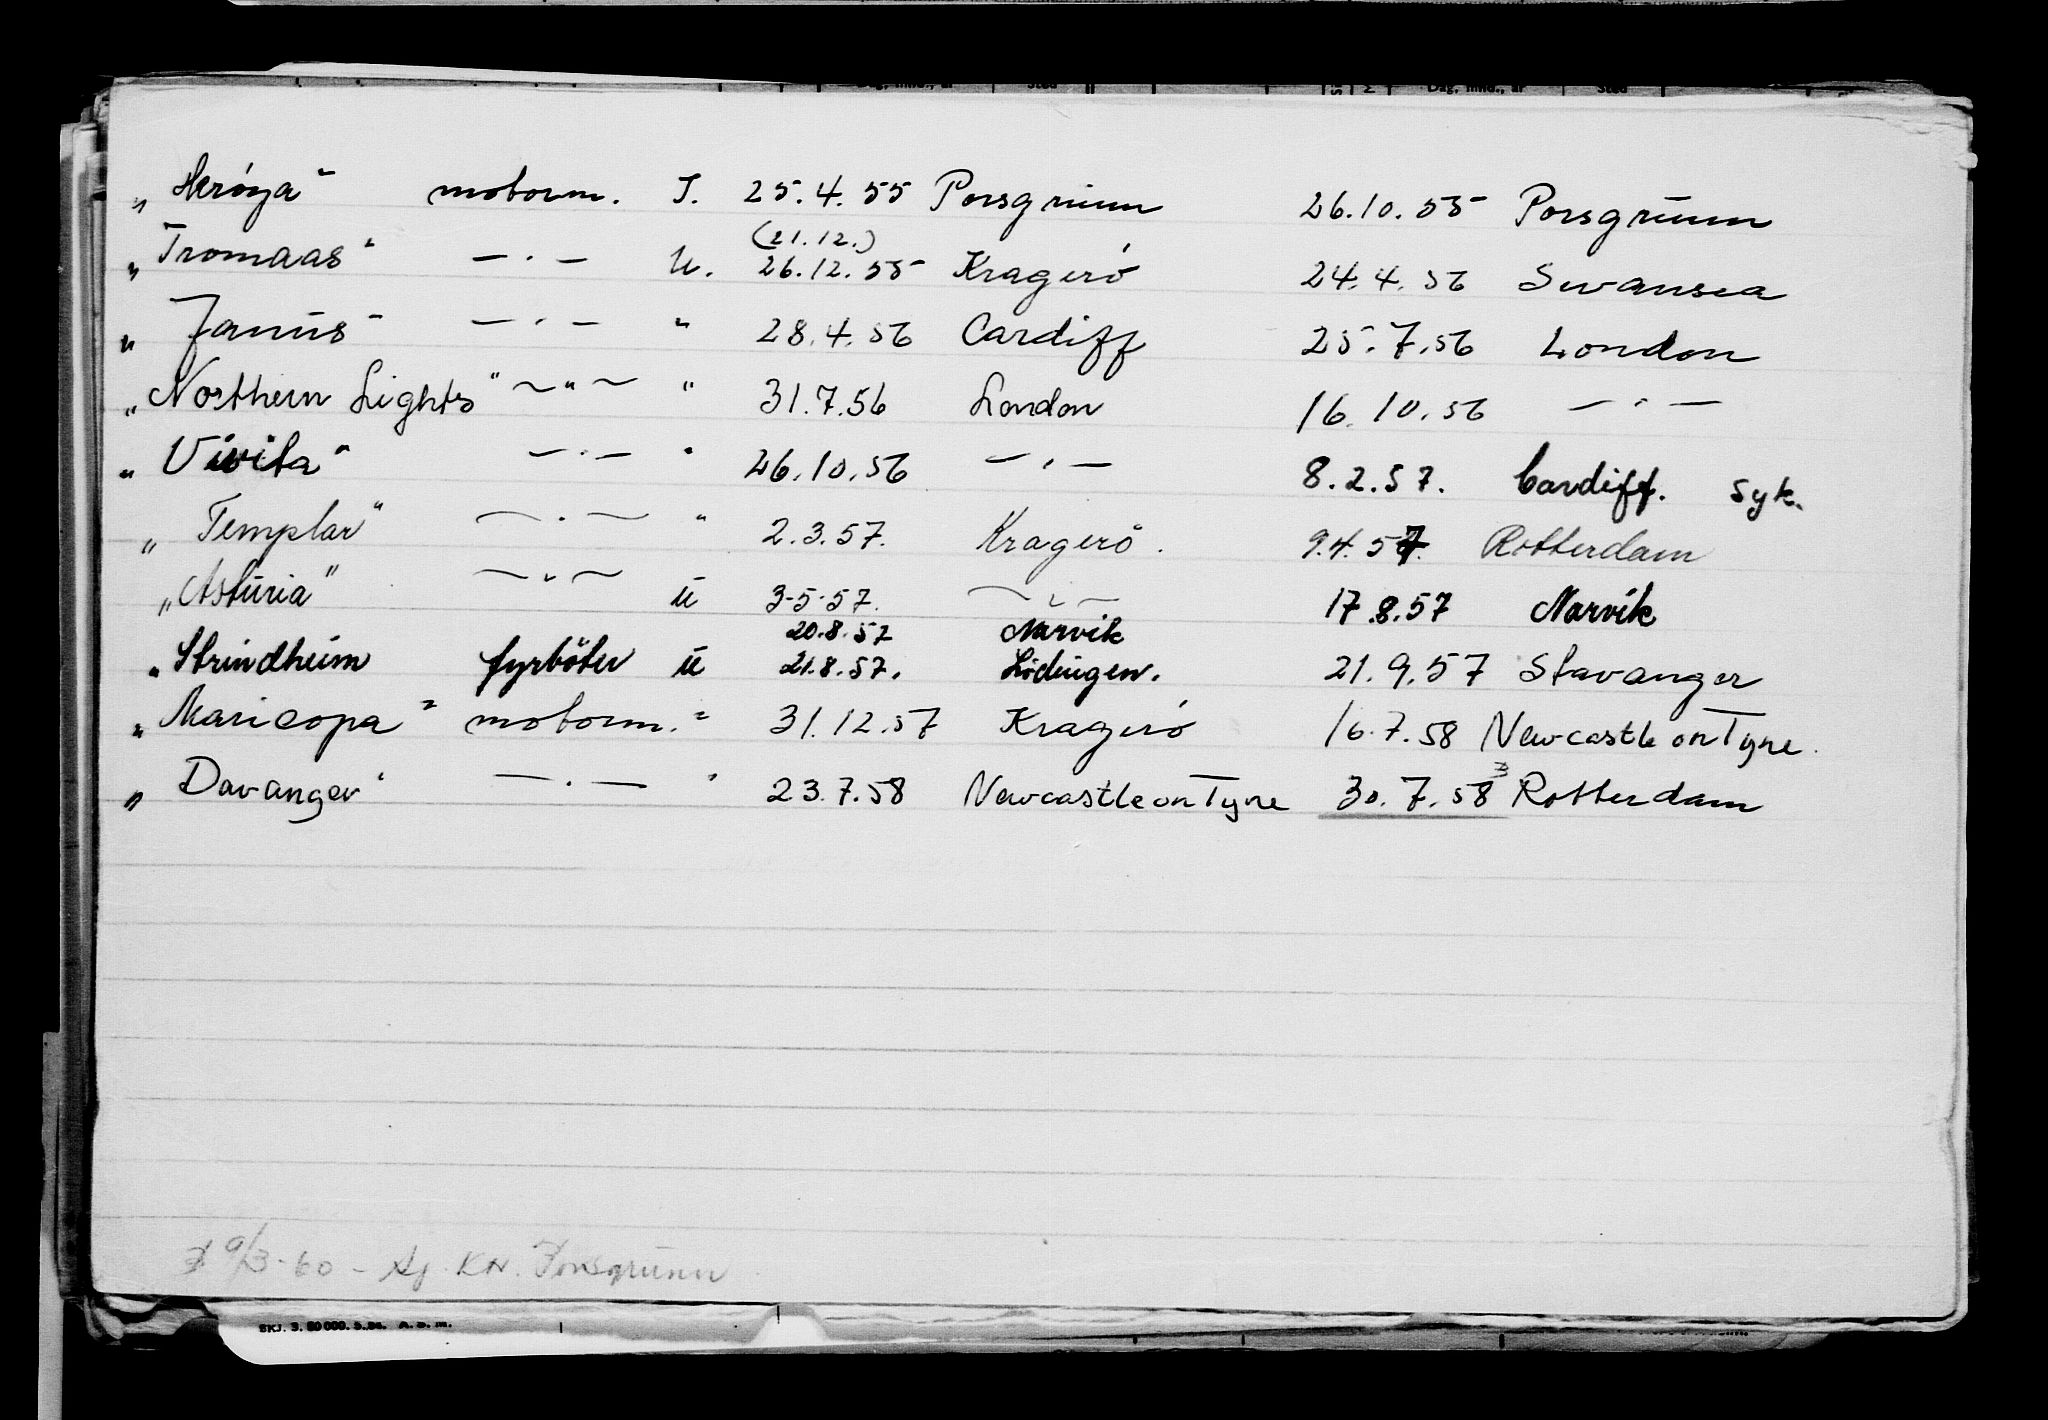 „Herøya" motorm. I. 25.4.55 Porsgrunn 26.10.55 Porsgrunn
(21.12.)
„Tromaas" — · — U. 26.12.55 Kragerø 24.4.56 Swansea
„Janus" — · — " 28.4.56 Cardiff 25.7.56 London
„Northern Lights" — " — " 31.7.56 London 16.10.56 — " —
„Vivita" — · — " 26.10.56 — · — 8.2.57. Cardiff. Syk.
„Templar" — · — " 2.3.57. Kragerö. 9.4.57. Rotterdam
„Asturia" — " — U 3-5-57. — " — 17.8.57 Narvik
20.8.57 Narvik
„Strindheim fyrböter U 21.8.57. Lödingen. 21.9.57 Stavanger
„Maricopa" motorm. " 31.12.57 Kragerø 16.7.58 Newcastle on Tyne.
„Davanger" — · — " 23.7.58 Newcastle on Tyne 30.7.58 Rotterdam
9/3-60 - Porsgrunn
SKJ. 3. 50 000. 5.54. A. S. M.